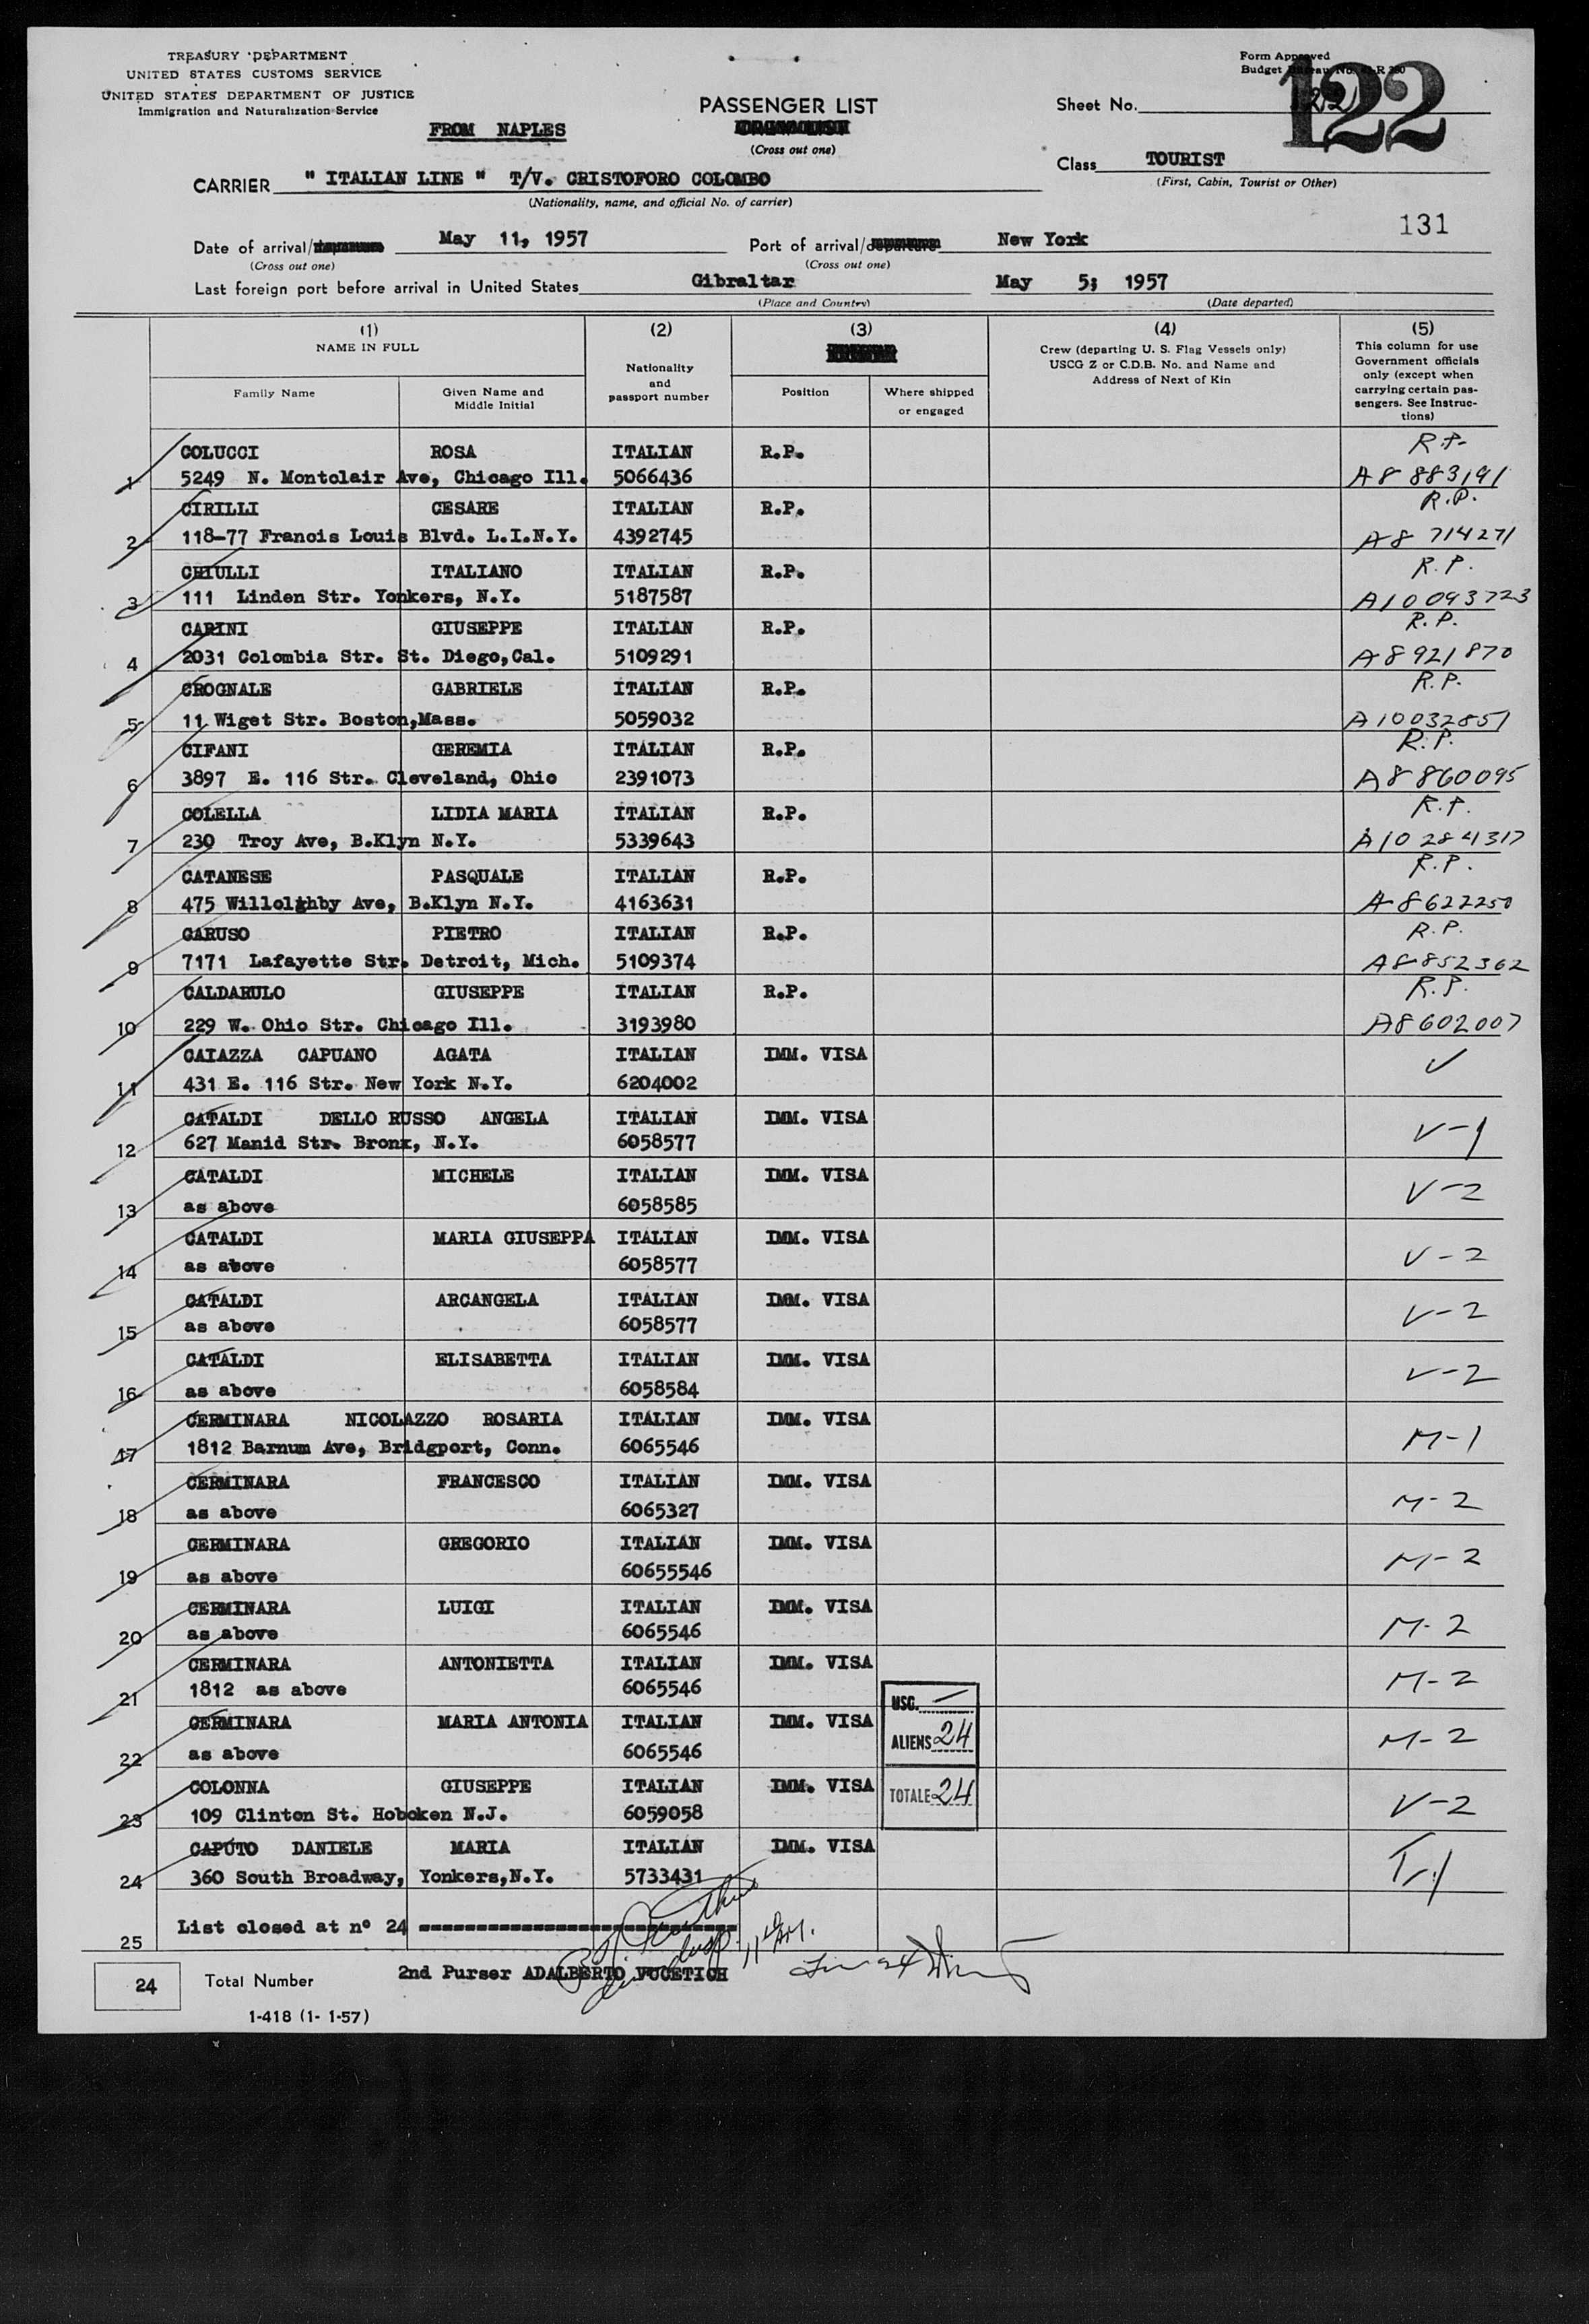 TREASURY DEPARTMENT
UNITED STATES CUSTOMS SERVICE
UNITED STATES DEPARTMENT OF JUSTICE
Immigration and Naturalization Service
Form Approved
Budget Bureau No.
122
FROM NAPLES
PASSENGER LIST
(Cross out one)
Sheet No.
Class TOURIST
(First, Cabin, Tourist or Other)
CARRIER " ITALIAN LINE " T/V. CRISTOFORO COLOMBO
(Nationality, name, and official No. of carrier)
131
Date of arrival/ May 11, 1957 Port of arrival/departure New York
(Cross out one) (Cross out one)
Last foreign port before arrival in United States Gibraltar May 5; 1957
(Place and Country) (Date departed)
(1) (2) (3) (4) (5)
NAME IN FULL
Family Name
Given Name and Middle Initial
Nationality and passport number
Position
Where shipped or engaged
Crew (departing U. S. Flag Vessels only)
USCG Z or C.D.B. No. and Name and
Address of Next of Kin
This column for use
Government officials
only (except when
carrying certain pas-
sengers. See Instruc-
tions)
COLUCCI ROSA ITALIAN R.P. R.P.
1 5249 N. Montclair Ave, Chicago Ill. 5066436 A8 883191
CIRILLI CESARE ITALIAN R.P. R.P.
2 118-77 Francis Louis Blvd. L.I.N.Y. 4392745 A8 714271
CHIULLI ITALIANO ITALIAN R.P. R.P.
3 111 Linden Str. Yonkers, N.Y. 5187587 A10 093723
CARINI GIUSEPPE ITALIAN R.P. R.P.
4 2031 Colombia Str. St. Diego,Cal. 5109291 A8 921870
CROGNALE GABRIELE ITALIAN R.P. R.P.
5 11 Wiget Str. Boston,Mass. 5059032 A10032851
CIFANI GEREMIA ITALIAN R.P. R.P.
6 3897 E. 116 Str. Cleveland, Ohio 2391073 A8 860095
COLELLA LIDIA MARIA ITALIAN R.P. R.P.
7 230 Troy Ave, B.Klyn N.Y. 5339643 A10 284317
CATANESE PASQUALE ITALIAN R.P. R.P.
8 475 Willolghby Ave, B.Klyn N.Y. 4163631 A8622250
CARUSO PIETRO ITALIAN R.P. R.P.
9 7171 Lafayette Str. Detroit, Mich. 5109374 A8852362
CALDARULO GIUSEPPE ITALIAN R.P. R.P.
10 229 W. Ohio Str. Chicago Ill. 3193980 A8602007
CAIAZZA CAPUANO AGATA ITALIAN IMM. VISA
11 431 E. 116 Str. New York N.Y. 6204002
CATALDI DELLO RUSSO ANGELA ITALIAN IMM. VISA
12 627 Manid Str. Bronx, N.Y. 6058577 V-1
CATALDI MICHELE ITALIAN IMM. VISA
13 as above 6058585 V-2
CATALDI MARIA GIUSEPPA ITALIAN IMM. VISA
14 as above 6058577 V-2
CATALDI ARCANGELA ITALIAN IMM. VISA
15 as above 6058577 V-2
CATALDI ELISABETTA ITALIAN IMM. VISA
16 as above 6058584 V-2
CERMINARA NICOLAZZO ROSARIA ITALIAN IMM. VISA
17 1812 Barnum Ave, Bridgport, Conn. 6065546 M-1
CERMINARA FRANCESCO ITALIAN IMM. VISA
18 as above 6065327 M-2
CERMINARA GREGORIO ITALIAN IMM. VISA
19 as above 60655546 M-2
CERMINARA LUIGI ITALIAN IMM. VISA
20 as above 6065546 M-2
CERMINARA ANTONIETTA ITALIAN IMM. VISA
21 1812 as above 6065546 M-2
CERMINARA MARIA ANTONIA ITALIAN IMM. VISA
22 as above 6065546 M-2
USC. —
ALIENS 24
TOTALE 24
COLONNA GIUSEPPE ITALIAN IMM. VISA
23 109 Clinton St. Hoboken N.J. 6059058 V-2
CAPUTO DANIELE MARIA ITALIAN IMM. VISA
24 360 South Broadway, Yonkers,N.Y. 5733431
25 List closed at n° 24
24 Total Number 2nd Purser ADALBERTO VUCETICH
1-418 (1- 1-57)